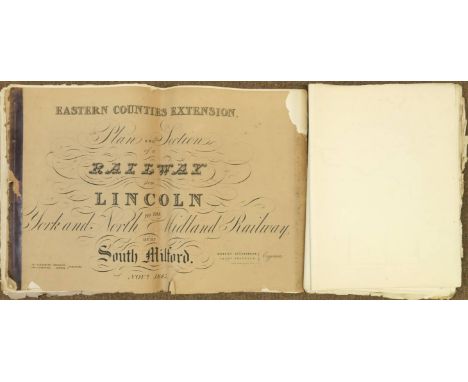 EASTERN COUNTIES EXTENSION.
Plan and Section
of a
RAILWAY
from
LINCOLN
to the
York and North Midland Railway.
near
South Milford.
NOVR. 1845.
Engineers